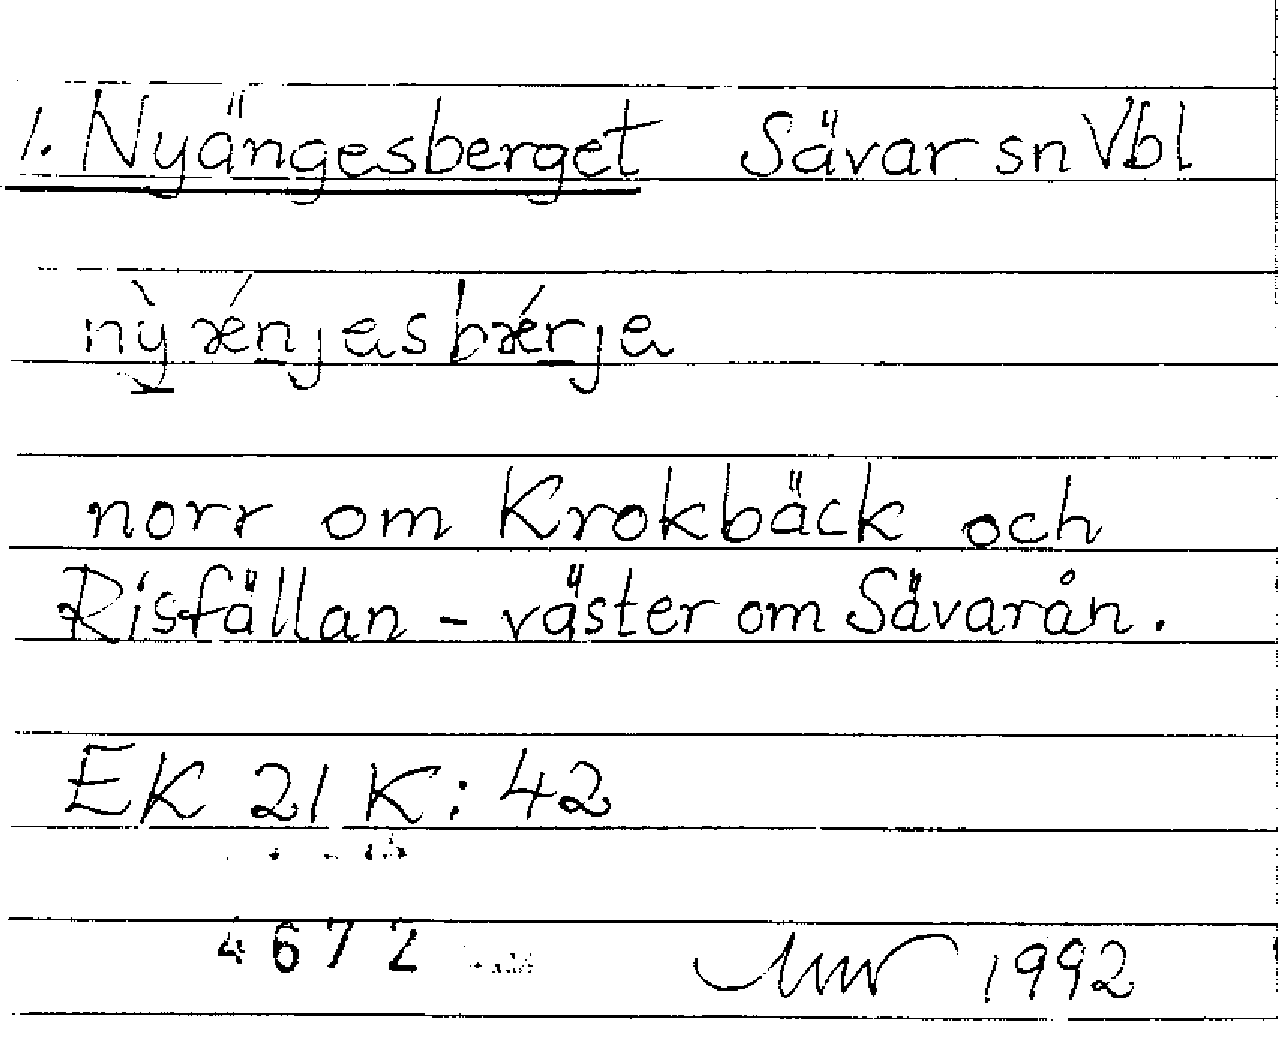 1. Nyängesberget Sävar sn Vbl
nỳǽnjesbǽrje
norr om Krokbäck och
Risfällan - väster om Sävarån.
EK 21 K: 42
4672 1992